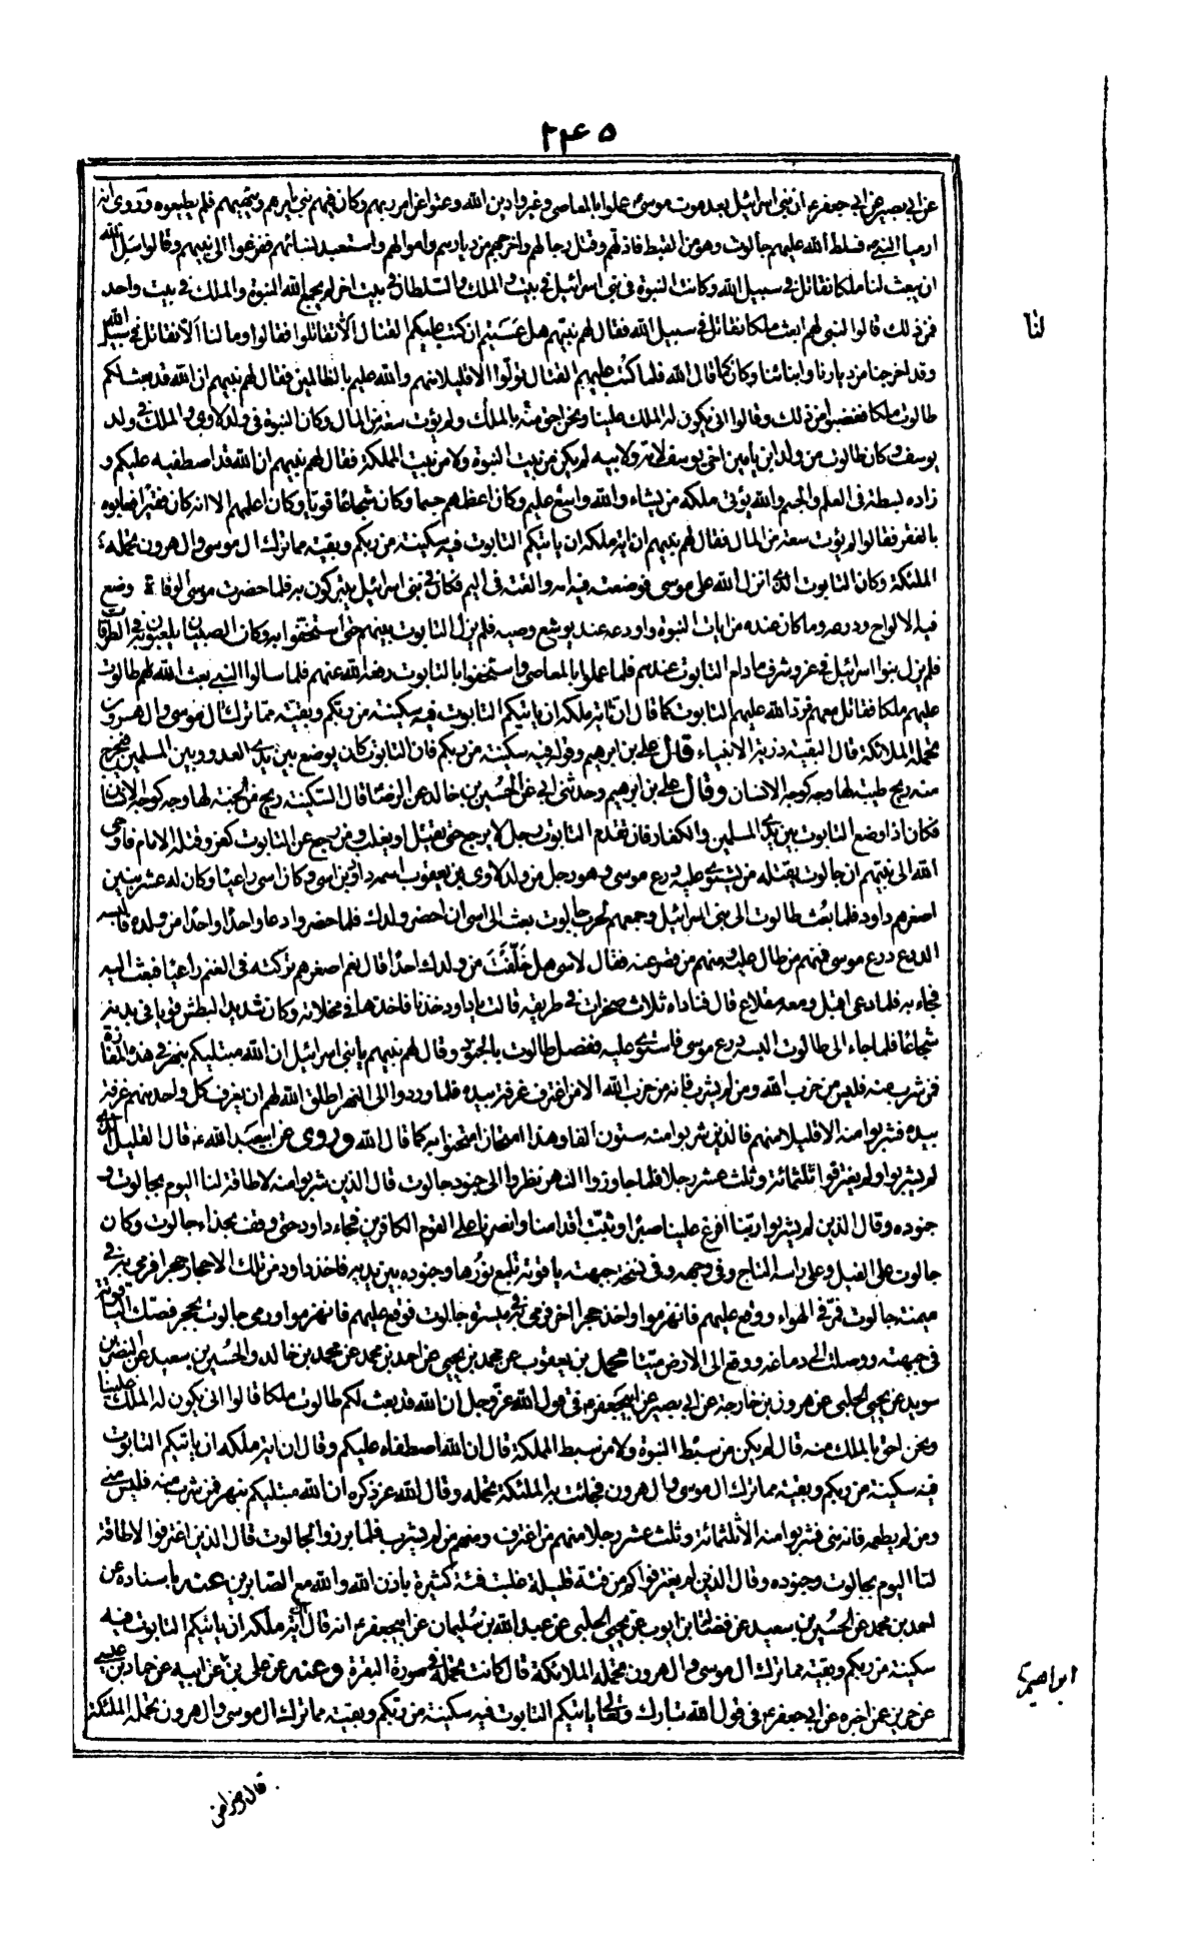 ٢٤٥
عن ابي بصير عن ابي جعفر ع ان بنى اسرائيل بعد موت موسى ع عملوا بالمعاصى وغيروا دين الله وعتوا عن امر ربهم وكان فيهم نبى يامرهم وينهيهم فلم يطيعوه وروى انه
ارميا النبى ع فسلط الله عليهم جالوت وهو من القبط فاذلهم وقتل رجالهم واخرجهم من ديارهم واموالهم واستعبد نسائهم ففزعوا الى نبيهم وقالوا سل الله
ان يبعث لنا ملكا نقاتل فى سبيل الله وكانت النبوة فى بنى اسرائيل فى بيت والملك والسلطان فى بيت اخر لم يجمع الله النبوة والملك فى بيت واحد
فمن ذلك قالوا لنبى لهم ابعث ملكا نقاتل فى سبيل الله فقال لهم نبيهم هل عسيتم ان كتب عليكم القتال الا تقاتلوا فقالوا وما لنا الا نقاتل فى سبيل الله
لنا
وقد اخرجنا من ديارنا وابنائنا وكان كما قال الله فلما كتب عليهم القتال تولوا الا قليلا منهم والله عليم بالظالمين فقال لهم نبيهم ان الله قد بعث لكم
طالوت ملكا فغضبوا من ذلك وقالوا انى يكون له الملك علينا ونحن احق منه بالملك ولم يؤت سعة من المال وكان النبوة فى ولد لاوى والملك فى ولد
يوسف وكان طالوت من ولد ابن يامين اخى يوسف لامه ولابيه لم يكن من بيت النبوة ولا من بيت المملكة فقال لهم نبيهم ان الله قد اصطفيه عليكم و
زاده بسطة فى العلم والجسم والله يؤتى ملكه من يشاء والله واسع عليم وكان اعظمهم جسما وكان شجاعا قويا وكان اعلمهم الا انه كان فقيرا فعابوه
بالفقر فقالوا لم يؤت سعة من المال فقال لهم نبيهم ان اية ملكه ان ياتيكم التابوت فيه سكينة من ربكم وبقية مما ترك ال موسى وال هرون تحمله
الملئكة وكان التابوت الذى انزل الله على موسى فوضعته فيه امه والقته فى اليم فكان فى بنى اسرائيل يتبركون به فلما حضرت موسى الوفاة وضع
فيه الالواح ودرعه وما كان عنده من ايات النبوة واودعه عند يوشع وصيه فلم يزل التابوت بينهم حتى استخفوا به وكان الصبيان يلعبون به فى الطرقات
فلم يزل بنوا اسرائيل فى عز وشرف ما دام التابوت عندهم فلما عملوا بالمعاصى واستخفوا بالتابوت رفعه الله عنهم فلما سالوا النبى بعث الله لهم طالوت
عليهم ملكا فقاتل معهم فرد الله عليهم التابوت كما قال ان اية ملكه ان ياتيكم التابوت فيه سكينة من ربكم وبقية مما ترك ال موسى وال هرون
تحمله الملائكة قال البقية ذرية الانبياء قال على بن ابرهيم وقوله فيه سكينة من ربكم فان التابوت كان يوضع بين يدى العدو وبين المسلمين فتخرج
منه ريح طيبة لها وجه كوجه الانسان وقال على بن ابرهيم وحدثنى ابى عن الحسين بن خالد عن الرضا قال السكينة ريح من الجنة لها وجه كوجه الانسان
فكان اذا وضع التابوت بين يدى المسلمين والكفار فان تقدم التابوت رجل لا يرجع حتى يقتل او يغلب ومن رجع عن التابوت كفر وقتله الامام فاوحى
الله الى نبيهم ان جالوت يقتله من يستوى عليه درع موسى وهو رجل من ولد لاوى بن يعقوب اسمه داود بن اسى وكان اسى راعيا وكان له عشر بنين
اصغرهم داود فلما بعث طالوت الى بنى اسرائيل وجمعهم لحرب جالوت بعث الى اسى ان احضر ولدك فلما حضروا دعا واحدا واحدا من ولده فالبسه
الدرع درع موسى فمنهم من طال عليه ومنهم من قصر عنه فقال لاسى هل خلفت من ولدك احدا قال نعم اصغرهم تركته فى الغنم راعيا فبعث اليه
فجاء به فلما دعى اقبل ومعه مقلاع قال فناداه ثلاث صخرات فى طريقه قالت يا داود خذنا فاخذها فى مخلاته وكان شديد البطش قويا فى بدنه
شجاعا فلما جاء الى طالوت البسه درع موسى فاستوى عليه ففصل طالوت بالجنود وقال لهم نبيهم يا بنى اسرائيل ان الله مبتليكم بنهر فى هذه المفازة
فمن شرب منه فليس من حزب الله ومن لم يشرب فانه من حزب الله الا من اغترف غرفة بيده فلما وردوا الى النهر اطلق الله لهم ان يغرف كل واحد منهم غرفة
بيده فشربوا منه الا قليلا منهم فالذين شربوا منه ستون الفا وهذا امتحان امتحنوا به كما قال الله وروى عن ابيعبد الله ع قال القليل الذين
لم يشربوا ولم يغترفوا ثلثمائة وثلث عشر رجلا فلما جاوزوا النهر نظروا الى جنود جالوت قال الذين شربوا منه لا طاقة لنا اليوم بجالوت و
جنوده وقال الذين لم يشربوا ربنا افرغ علينا صبرا وثبت اقدامنا وانصرنا على القوم الكافرين فجاء داود حتى وقف بحذاء جالوت وكان
جالوت على الفيل وعلى راسه التاج وفى وجهه وفى جبهته ياقوتة تلمع نورها وجنوده بين يديه فاخذ داود من تلك الاحجار حجرا فرمى به فى
ميمنة جالوت فمر فى الهواء ووقع عليهم فانهزموا واخذ حجرا اخر فرمى به فى ميسرة جالوت فوقع عليهم فانهزموا ورمى جالوت بحجر فصك الياقوتة
فى جبهته ووصلت الى دماغه ووقع الى الارض ميتا محمد بن يعقوب عن محمد بن يحيى عن احمد بن محمد عن محمد بن خالد والحسين بن سعيد عن النضر بن
سويد عن يحيى الحلبى عن هرون بن خارجة عن ابي بصير عن ابيجعفر ع فى قول الله عز وجل ان الله قد بعث لكم طالوت ملكا قالوا انى يكون له الملك علينا
ونحن احق بالملك منه قال لم يكن من سبط النبوة ولا من سبط المملكة قال ان الله اصطفاه عليكم وقال ان اية ملكه ان ياتيكم التابوت
فيه سكينة من ربكم وبقية مما ترك ال موسى وال هرون فجائت به الملئكة تحمله وقال الله عز ذكره ان الله مبتليكم بنهر فمن شرب منه فليس منى
ومن لم يطعمه فانه منى فشربوا منه الا ثلثمائة وثلث عشر رجلا منهم من اغترف ومنهم من لم يشرب فلما برزوا لجالوت قال الذين اغترفوا لا طاقة
لنا اليوم بجالوت وجنوده وقال الذين لم يغترفوا كم من فئة قليلة غلبت فئة كثيرة باذن الله والله مع الصابرين عنه باسناده عن
احمد بن محمد عن الحسين بن سعيد عن فضالة بن ايوب عن يحيى الحلبى عن عبد الله بن سليمان عن ابيجعفر ع انه قال ان اية ملكه ان ياتيكم التابوت فيه
سكينة من ربكم وبقية مما ترك ال موسى وال هرون تحمله الملائكة قال كانت تحمله فى صورة البقرة وعنه عن على بن عن ابيه عن حماد بن عيسى
ابراهيم
عن حريز عن اخبره عن ابي جعفر ع فى قول الله تبارك وتعالى ياتيكم التابوت فيه سكينة من ربكم وبقية مما ترك ال موسى وال هرون تحمله الملئكة
قال رضراض